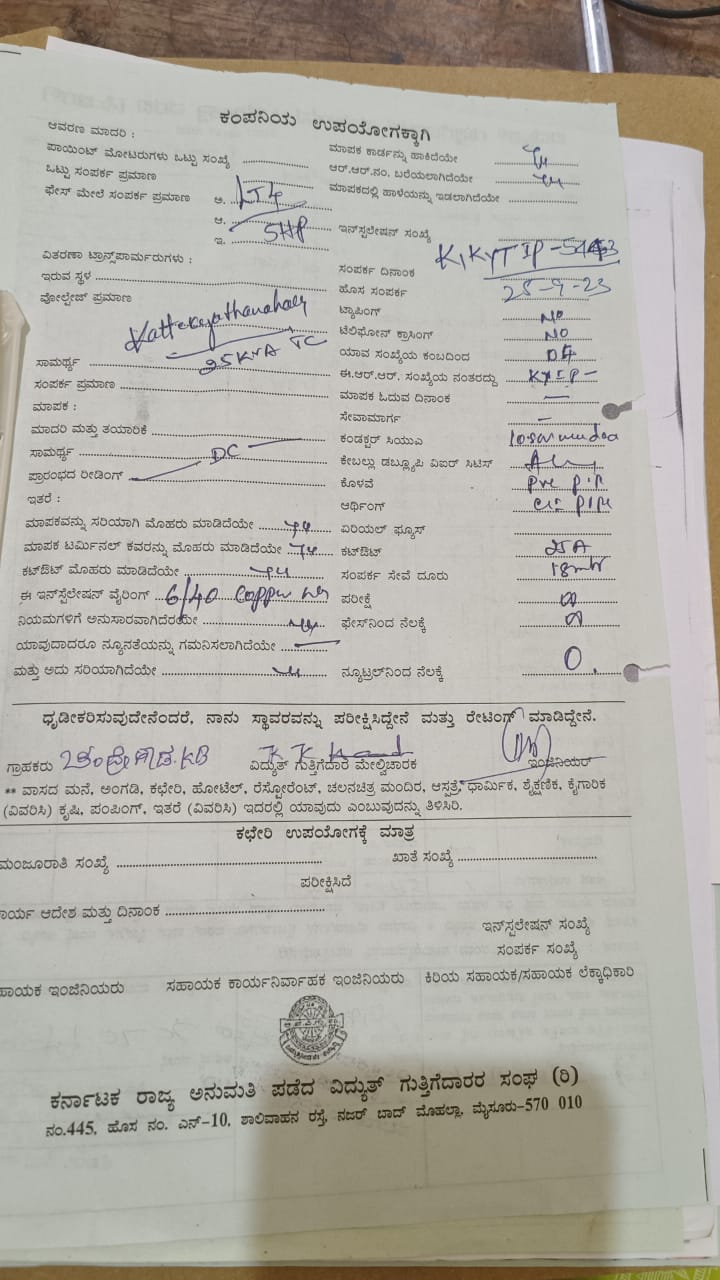 ಕಂಪನಿಯ ಉಪಯೋಗಕ್ಕಾಗಿ
ಆವರಣ ಮಾದರಿ :
ಪಾಯಿಂಟ್ ಮೋಟರುಗಳು ಒಟ್ಟು ಸಂಖ್ಯೆ
ಒಟ್ಟು ಸಂಪರ್ಕ ಪ್ರಮಾಣ
ಫೇಸ್ ಮೇಲೆ ಸಂಪರ್ಕ ಪ್ರಮಾಣ ಅ. LT4
ಆ. 5HP
ಇ.
ವಿತರಣಾ ಟ್ರಾನ್ಸ್‌ಪಾರ್ಮರುಗಳು :
ಇರುವ ಸ್ಥಳ
ವೋಲ್ಟೇಜ್ ಪ್ರಮಾಣ
25KVA TC
ಸಾಮರ್ಥ್ಯ
ಸಂಪರ್ಕ ಪ್ರಮಾಣ
ಮಾಪಕ :
ಮಾದರಿ ಮತ್ತು ತಯಾರಿಕೆ
ಸಾಮರ್ಥ್ಯ DC
ಪ್ರಾರಂಭದ ರೀಡಿಂಗ್
ಇತರೆ :
ಮಾಪಕವನ್ನು ಸರಿಯಾಗಿ ಮೊಹರು ಮಾಡಿದೆಯೇ
ಮಾಪಕ ಟರ್ಮಿನಲ್ ಕವರನ್ನು ಮೊಹರು ಮಾಡಿದೆಯೇ
ಕಟ್‌ಔಟ್ ಮೊಹರು ಮಾಡಿದೆಯೇ
ಈ ಇನ್‌ಸ್ಟಲೇಷನ್ ವೈರಿಂಗ್ 6/40 Copper
ನಿಯಮಗಳಿಗೆ ಅನುಸಾರವಾಗಿದೆಯೇ
ಯಾವುದಾದರೂ ನ್ಯೂನತೆಯನ್ನು ಗಮನಿಸಲಾಗಿದೆಯೇ
ಮತ್ತು ಅದು ಸರಿಯಾಗಿದೆಯೇ
ಮಾಪಕ ಕಾರ್ಡನ್ನು ಹಾಕಿದೆಯೇ
ಆರ್.ಆರ್.ನಂ. ಬರೆಯಲಾಗಿದೆಯೇ
ಮಾಪಕದಲ್ಲಿ ಹಾಳೆಯನ್ನು ಇಡಲಾಗಿದೆಯೇ
ಇನ್‌ಸ್ಟಲೇಷನ್ ಸಂಖ್ಯೆ
ಸಂಪರ್ಕ ದಿನಾಂಕ
ಹೊಸ ಸಂಪರ್ಕ 25-9-23
ಟ್ಯಾಪಿಂಗ್ NO
ಟೆಲಿಫೋನ್ ಕ್ರಾಸಿಂಗ್ NO
ಯಾವ ಸಂಖ್ಯೆಯ ಕಂಬದಿಂದ 04
ಈ.ಆರ್.ಆರ್. ಸಂಖ್ಯೆಯ ನಂತರದ್ದು KYIP-
ಮಾಪಕ ಓದುವ ದಿನಾಂಕ
ಸೇವಾಮಾರ್ಗ
ಕಂಡಕ್ಟರ್ ಸಿಯುಎ
ಕೇಬಲ್ಲು ಡಬ್ಲ್ಯೂಪಿ ವಿಐರ್ ಸಿಟಿಸ್
ಕೊಳವೆ
ಆರ್ಥಿಂಗ್
ಏರಿಯಲ್ ಫ್ಯೂಸ್
ಕಟ್‌ಔಟ್ 25A
ಸಂಪರ್ಕ ಸೇವೆ ದೂರು 18mtr
ಪರೀಕ್ಷೆ
ಫೇಸ್‌ನಿಂದ ನೆಲಕ್ಕೆ
ನ್ಯೂಟ್ರಲ್‌ನಿಂದ ನೆಲಕ್ಕೆ 0.
ಧೃಡೀಕರಿಸುವುದೇನೆಂದರೆ, ನಾನು ಸ್ಥಾವರವನ್ನು ಪರೀಕ್ಷಿಸಿದ್ದೇನೆ ಮತ್ತು ರೇಟಿಂಗ್ ಮಾಡಿದ್ದೇನೆ.
ಗ್ರಾಹಕರು ವಿದ್ಯುತ್ ಗುತ್ತಿಗೆದಾರ ಮೇಲ್ವಿಚಾರಕ ಇಂಜಿನಿಯರ್
** ವಾಸದ ಮನೆ, ಅಂಗಡಿ, ಕಛೇರಿ, ಹೋಟೆಲ್, ರೆಸ್ಟೋರೆಂಟ್, ಚಲನಚಿತ್ರ ಮಂದಿರ, ಆಸ್ಪತ್ರೆ, ಧಾರ್ಮಿಕ, ಶೈಕ್ಷಣಿಕ, ಕೈಗಾರಿಕ
(ವಿವರಿಸಿ) ಕೃಷಿ, ಪಂಪಿಂಗ್, ಇತರೆ (ವಿವರಿಸಿ) ಇದರಲ್ಲಿ ಯಾವುದು ಎಂಬುವುದನ್ನು ತಿಳಿಸಿರಿ.
ಕಛೇರಿ ಉಪಯೋಗಕ್ಕೆ ಮಾತ್ರ
ಮಂಜೂರಾತಿ ಸಂಖ್ಯೆ ಖಾತೆ ಸಂಖ್ಯೆ
ಪರೀಕ್ಷಿಸಿದೆ
ಾರ್ಯ ಆದೇಶ ಮತ್ತು ದಿನಾಂಕ
ಇನ್‌ಸ್ಟಲೇಷನ್ ಸಂಖ್ಯೆ
ಸಂಪರ್ಕ ಸಂಖ್ಯೆ
ಹಾಯಕ ಇಂಜಿನಿಯರು ಸಹಾಯಕ ಕಾರ್ಯನಿರ್ವಾಹಕ ಇಂಜಿನಿಯರು ಕಿರಿಯ ಸಹಾಯಕ/ಸಹಾಯಕ ಲೆಕ್ಕಾಧಿಕಾರಿ
ಕರ್ನಾಟಕ ರಾಜ್ಯ ಅನುಮತಿ ಪಡೆದ ವಿದ್ಯುತ್ ಗುತ್ತಿಗೆದಾರರ ಸಂಘ (ರಿ)
ನಂ.445, ಹೊಸ ನಂ. ಎನ್-10, ಶಾಲಿವಾಹನ ರಸ್ತೆ, ನಜರ್ ಬಾದ್ ಮೊಹಲ್ಲಾ, ಮೈಸೂರು-570 010